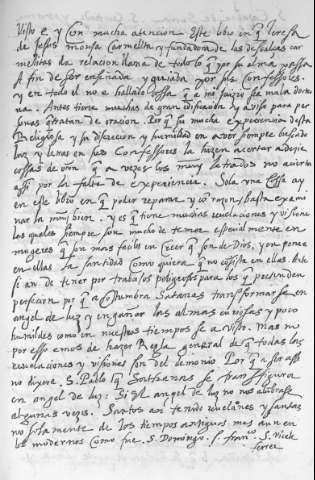 Visto e, y con mucha atencion este libro en q̃ Teresa
de Jesus monja carmelita y fundadora de las descalças car
melitas da relacion llana de todo lo q̃ por su alma passa
A fin de ser enseñada y guiada por sus confessores.
y en todo el no e hallado cossa q̃ a mi juizio sea mala dotri
na. Antes tiene muchas de gran edificacion y aviso para per
sonas q̃ tratan de oracion. Porq̃ su mucha experiencia desta
Religiosa y su discricion y humildad en aver siempre buscado
luz y letras en sus confessores la hazen acertar a dezir
cossas de oron q̃ a vezes los muy letrados no aciertan
assi por la falta de experiencia. Sola una cossa ay
en este libro en q̃ poder reparar y con razon / basta exami
narla muy bien. y es q̃ tiene muchas revelaciones y visiones
las quales siempre son mucho de temer especialmente en
mugeres q̃ son mas faciles en creer q̃ son de Dios, y en poner
en ellas la santidad como quiera q̃ no consista en ellas. Ante
s se an de tener por trabajos peligrosos para los q̃ pretenden
perficion porq̃ acostumbra Satanas transformarse en
angel de luz y engañar las almas curiosas y poco
humildes como en nuestros tiempos se a visto. Mas no
por esso emos de hazer Regla general de q̃ todas las
revelaciones y visiones son del demonio. Porq̃ a ser assi
no dixera S. Pablo q̃ Sathanas se transfigura
en angel de luz: Si el angel de luz no nos alumbrase
algunas vezes. Santos an tenido revelaciones y santas
no solamente de los tiempos antiguos mas aun en
los modernos como fue. S. Domingo. S. franco. S. Vicete
ferrer